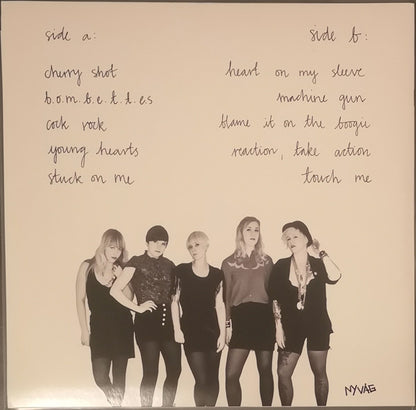 side a:
cherry shot
b.o.m.b.e.t.t.e.s
cock rock
young hearts
stuck on me
side b:
heart on my sleeve
machine gun
blame it on the boogie
reaction, take action
touch me
NYVÅG